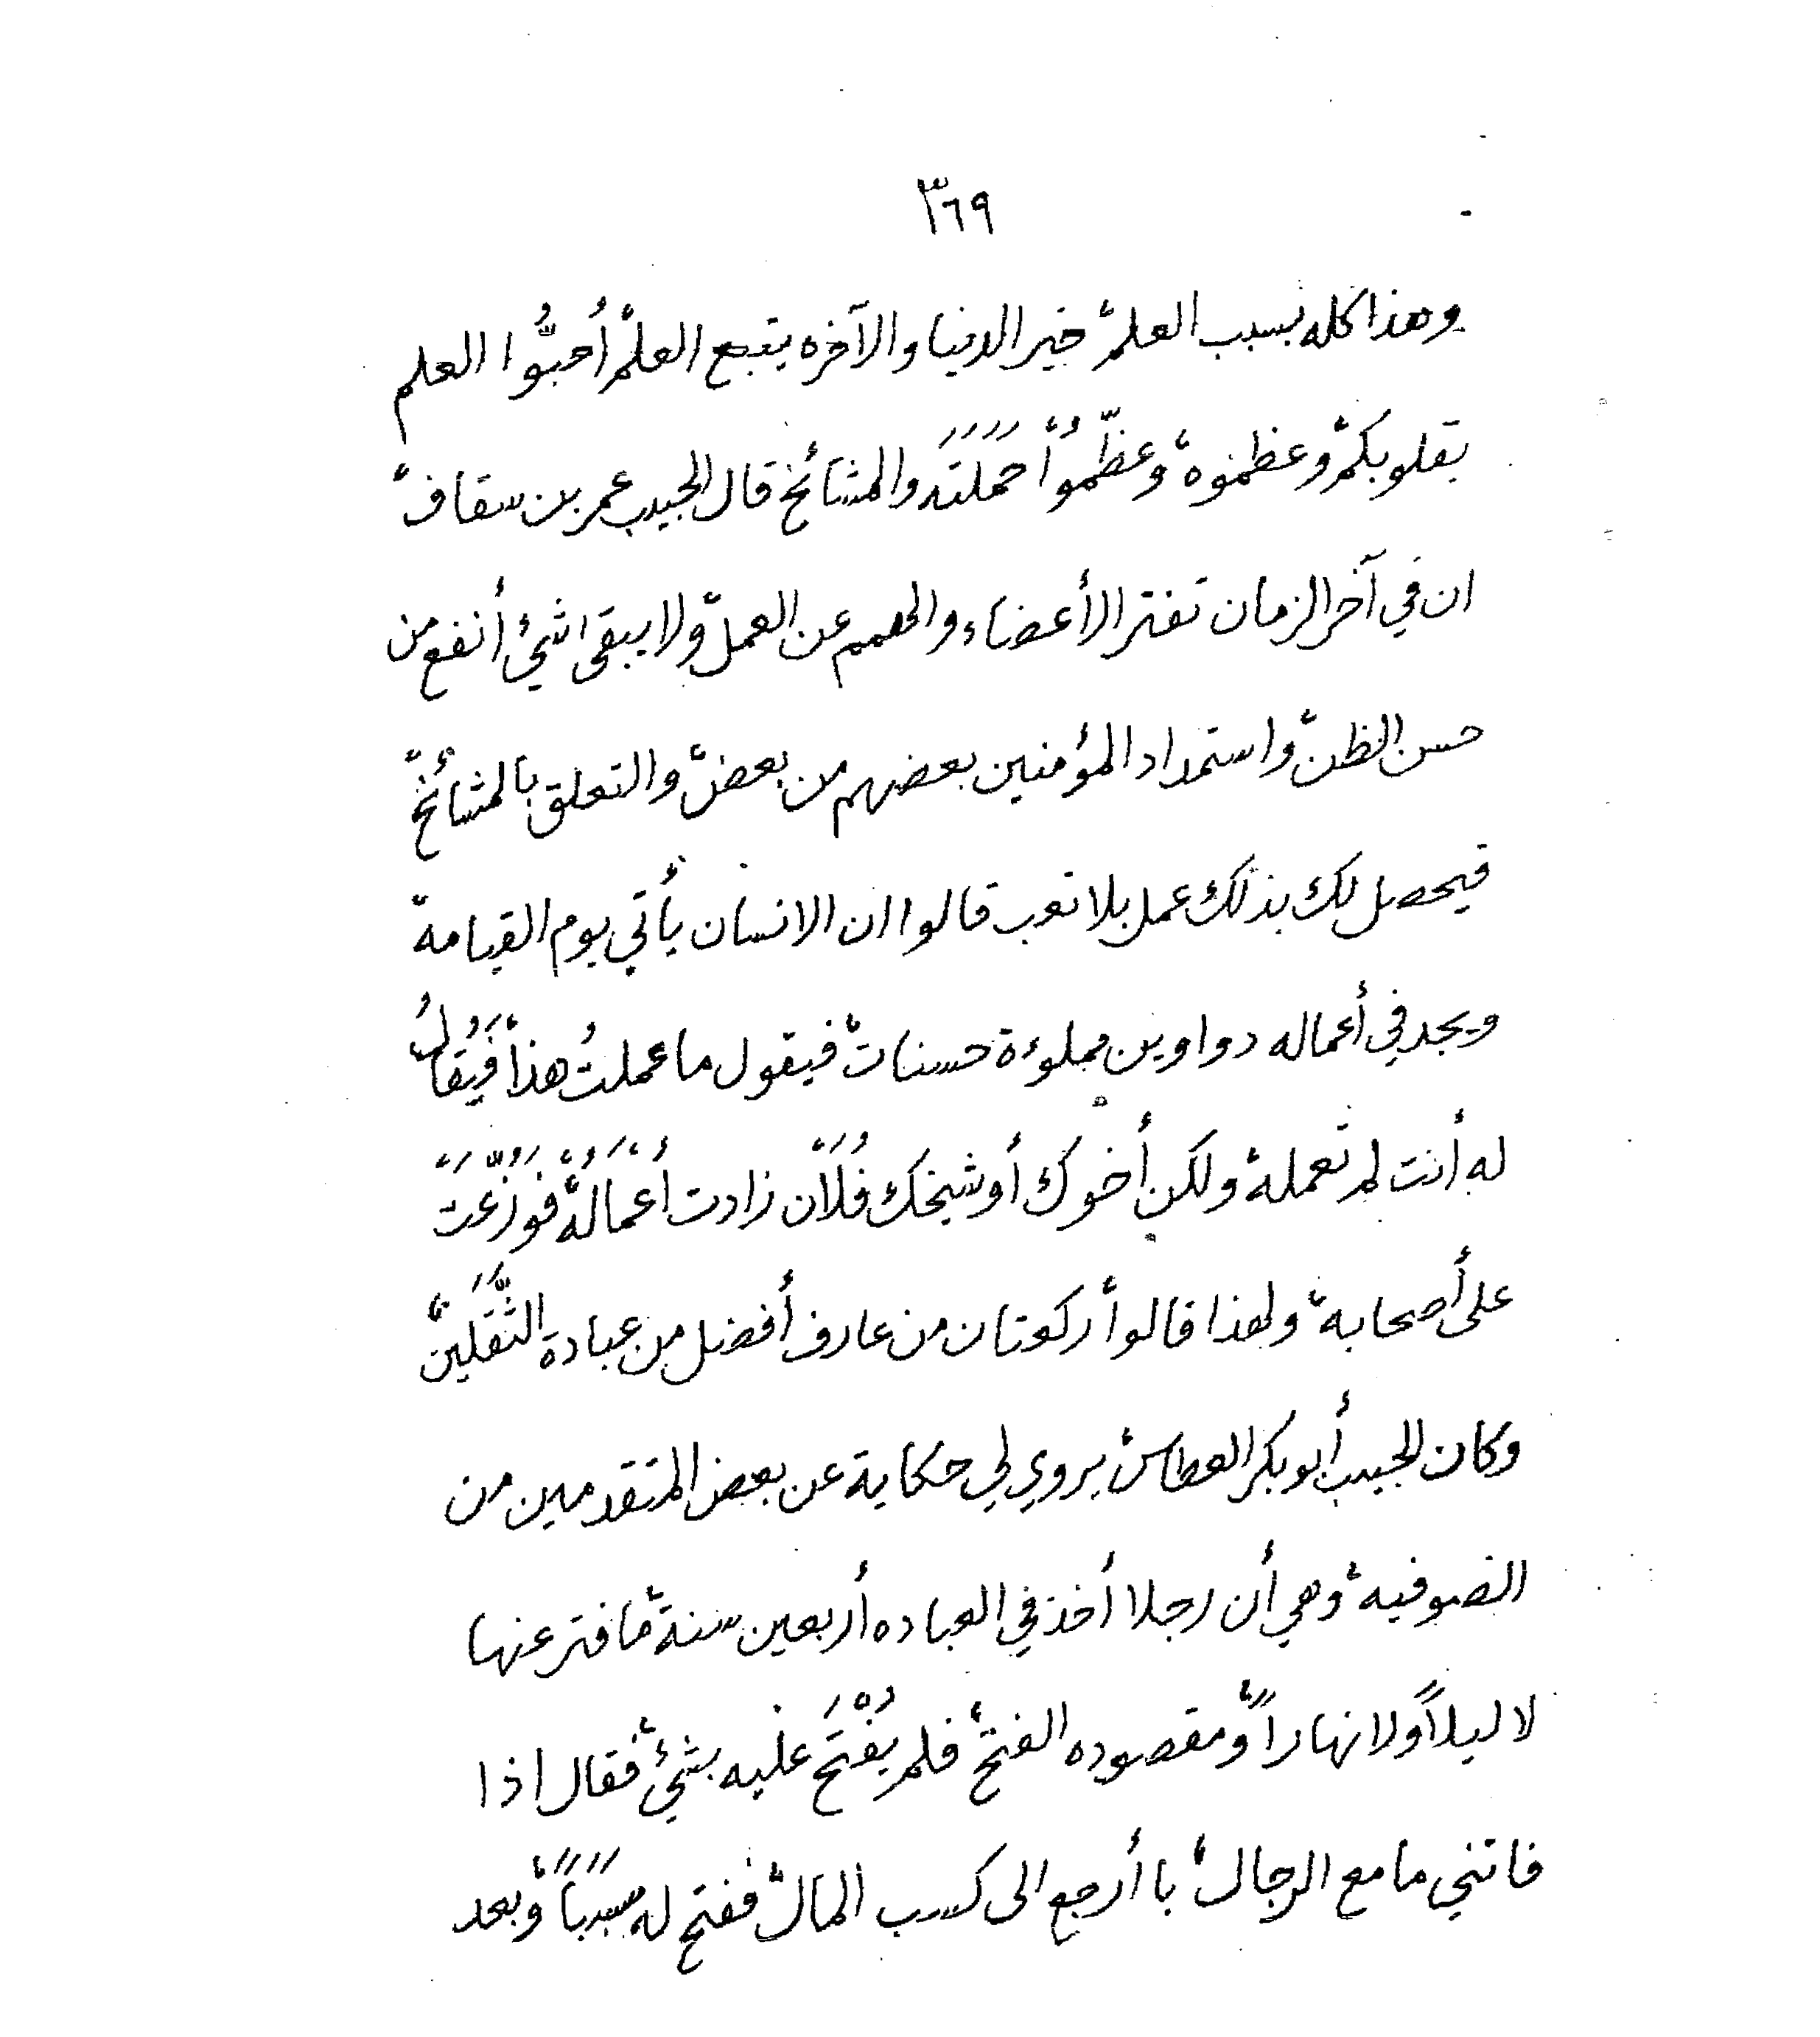 ٣٦٩
وهذا كله بسبب العلمْ خير الدنيا والآخره يتبع العلمْ أُحبُّوا العلم
بقلوبكمْ وعظموهْ وعظِّمُوْا حَمَلَتَه والمشائخْ قال الحبيب عمر بن سقافْ
ان في آخر الزمان تفتر الأعضاء والهمم عن العملْ ولا يبقى شيٌ أنفع من
حسن الظنْ واستمداد المؤمنين بعضهم من بعضْ والتعلق بالمشائخْ
فيحصل لك بذلك عمل بلا تعب قالوا ان الانسان يأتي يوم القيامة
ويجد في أعماله دواوين مملوءة حسناتْ فيقول ما عملتُ هذاْ فَيُقالُ
له أنت لم تعملهْ ولكن أخوك أو شيخك فُلَاْن زادت أعْمَالُهْ فَوُزِّعَتْ
على أصحابهْ ولهذا قالواْ ركعتان من عارف أفضل من عبادة الثَّقَلَينْ
وكان الحبيب أبوبكر العطاسْ يروي لي حكاية عن بعض المتقدمين من
الصوفيهْ وهي أن رجلا أخذ في العباده أربعين سنةْ ما فتر عنها
لا ليلاً ولا نهاراً ومقصوده الفتحْ فلم يُفْتَحْ عليه بشيْ فقال اذا
فاتني ما مع الرجالْ با أرجع الى كسب المالْ ففتح له سَبَباً وبعد